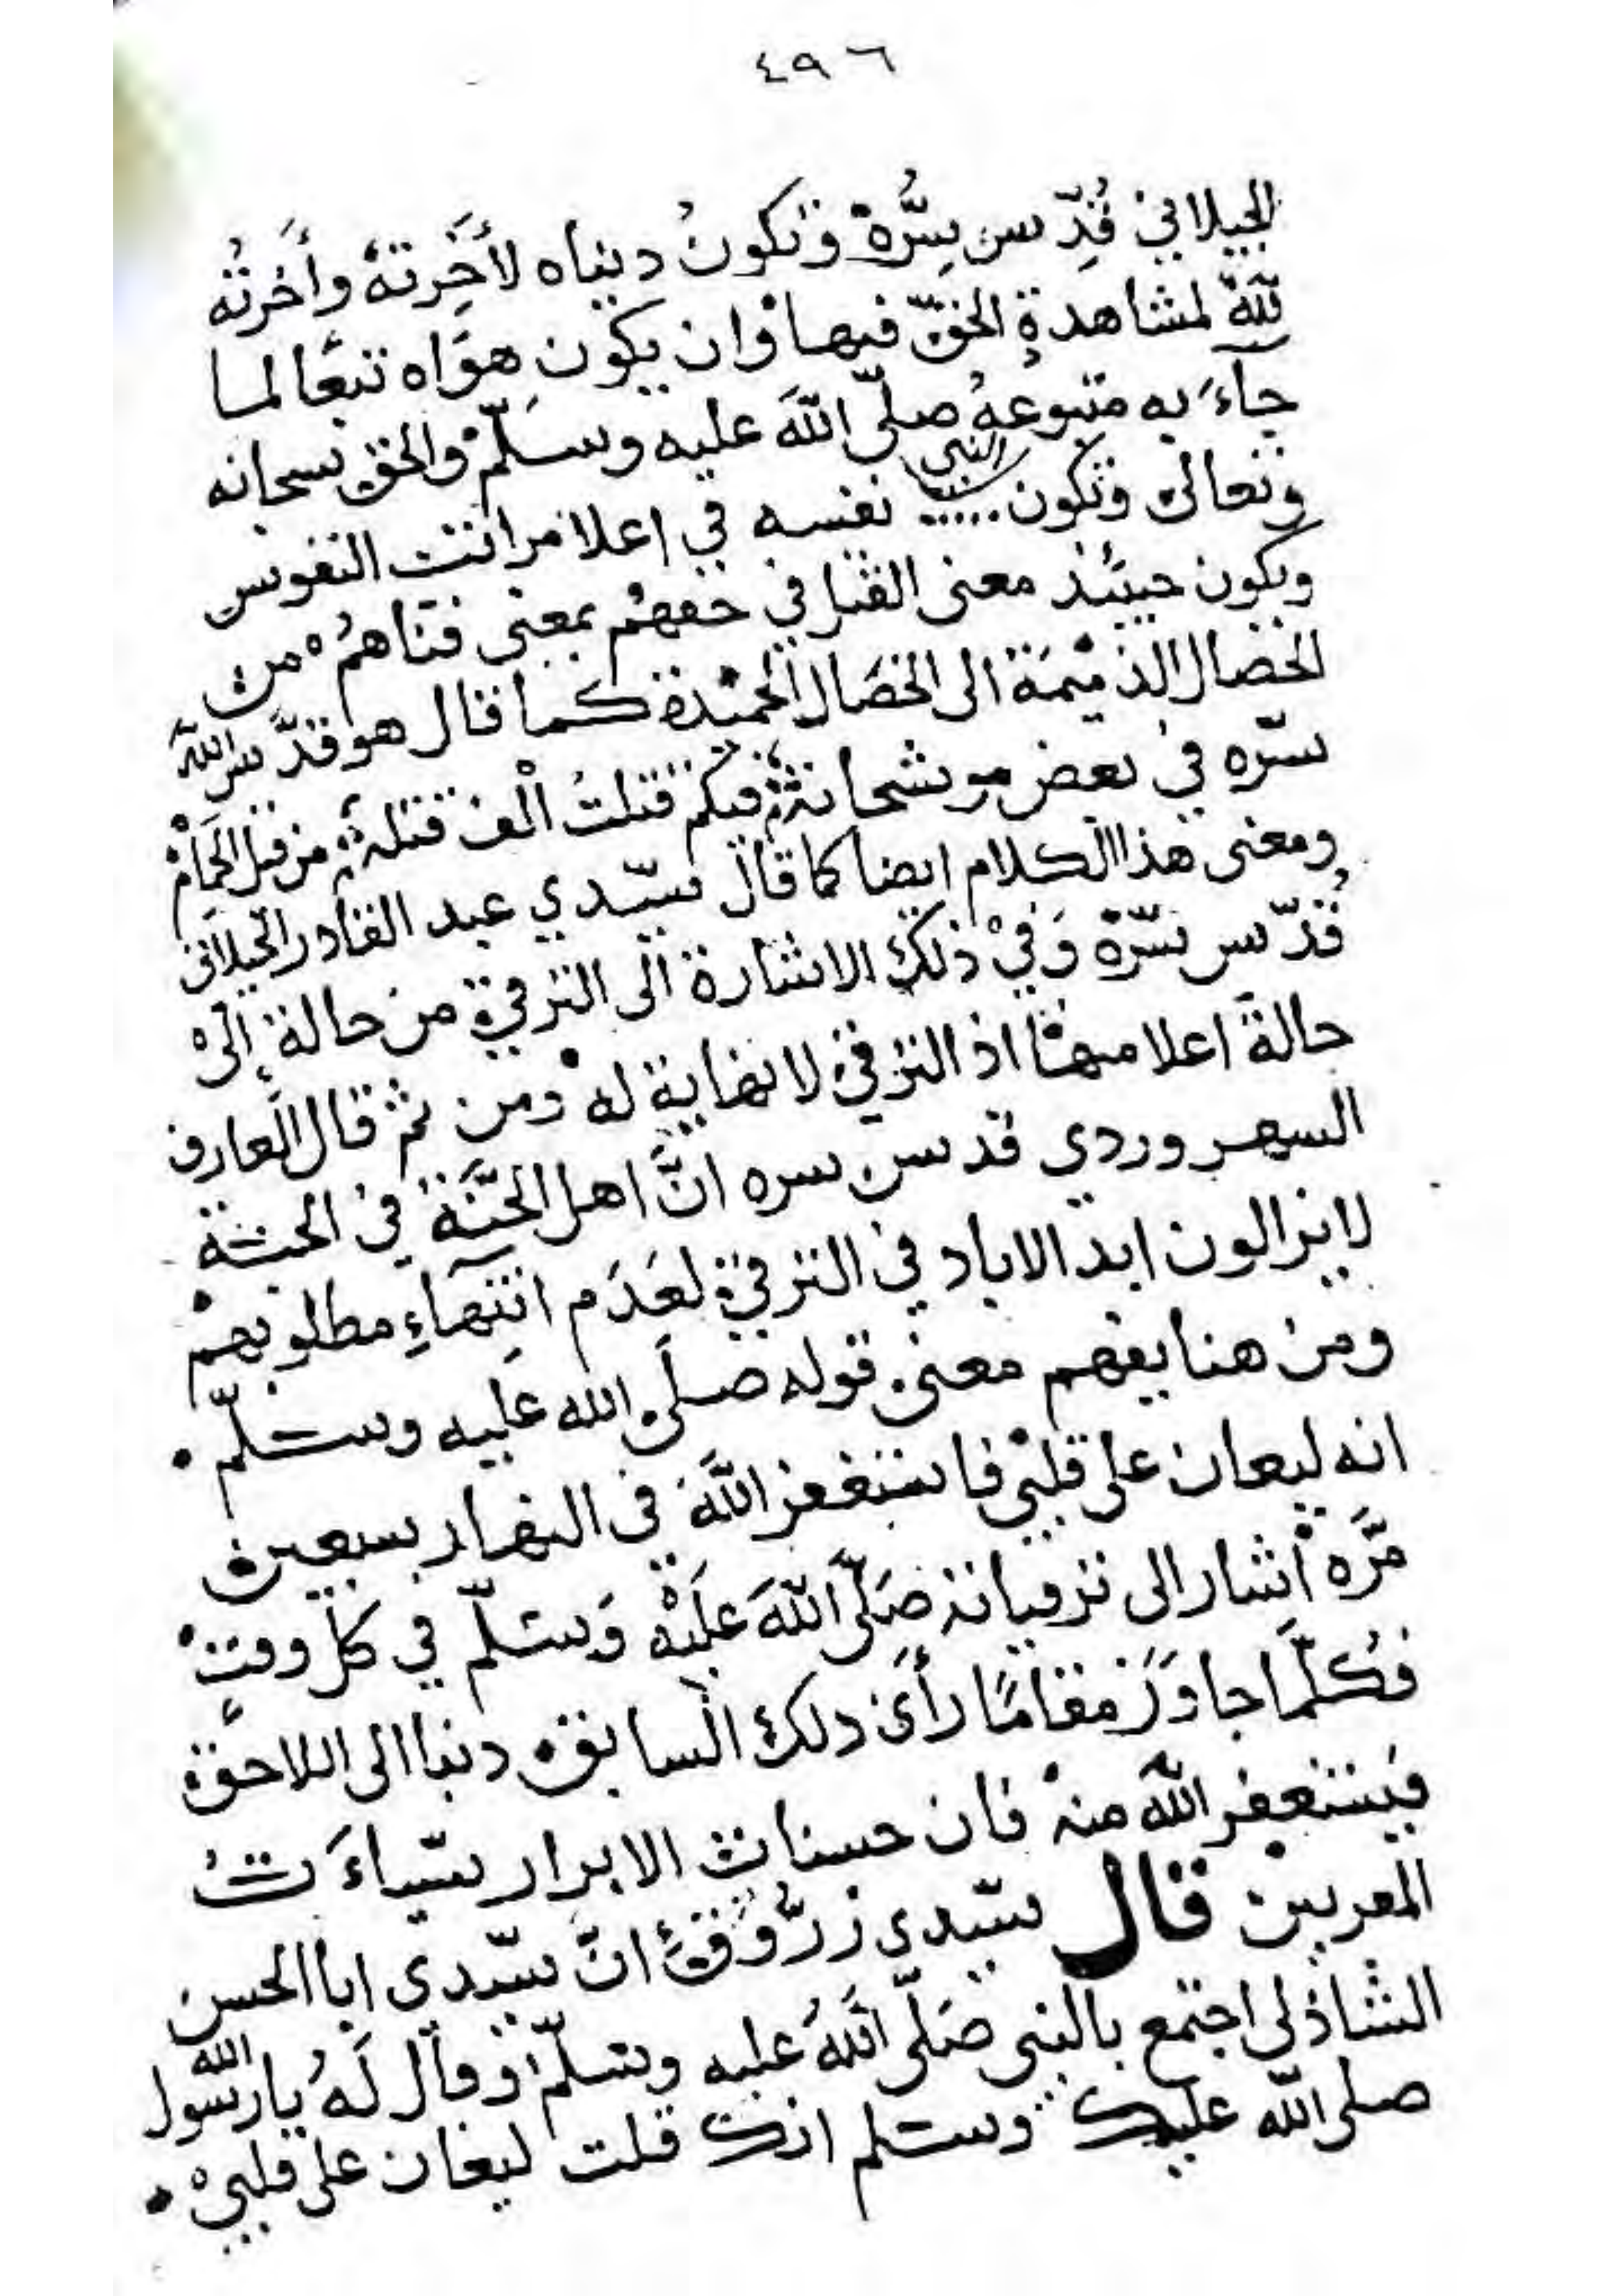 ٤٩٦
الجيلاني قُدِّس سِرُّهُ وتكونُ دنياه لأخِرتهُ وأخرتُه
للّهَ لمشاهدةِ الحقّ فيها وان يكون هوَاه تبعًا لما
جآءَ به متبوعهُ صلّى اللّهَ عليه وسَلّمْ والحق سبحانه
وتعالى وتكون ..... نفسه في اعلا مراتب النفوس
ويكون حينئذ معنى الفنا في حقهمْ بمعنى فناهمُ من
الخصال الذميْمَة الى الخصَال الحميْدة كما قال هو قدّس اللّهَ
سرّه في بعض موشحاته فكم قتلتُ ألْف قتله من قبل الحِمَامْ
ومعنى هذا الكلام ايضا كما قال سيّدي عبد القادر الجيلانى
قُدّس سّرّهْ وَفيْ ذلك الاشارة الى الترقي من حالة إلىْ
حالةَ اعلا منها اذ الترقي لا نهاية لهْ ومن ثم قال العارف
السهروردي قدس سره انَّ اهل الجنَّة في الجنة
لا يزالون ابد الاباد في الترقي لعَدَم انتهَاءِ مطلوبهمْ
ومن هنا يفهم معنى قوله صلَى الله عَليه وسَلّم •
انه ليغان على قلبْي فاستغفر اللّهَ فى النهار سبعين
مَرَّه أشار الى ترقياته صَلّى اللّهَ علَيْه وَسَلّم في كلّ وقتٍ
فكُلّما جاوَزَ مقامًا رأىَ ذلك السابق دنيا الى اللاحق
فيستغفر اللّهَ منهْ فان حسنات الابرار سيّاءَتُ
المقربين قال سيّدى زرُّوْق انَّ سيّدي ابا الحسن
الشاذلى اجتمع بالنبى صَلّى اللّهُ عليه وسَلّم وقال لَهُ يا رسول الله
صلى اللّه عليك وسلم انك قلت ليغان على قلبيْ •